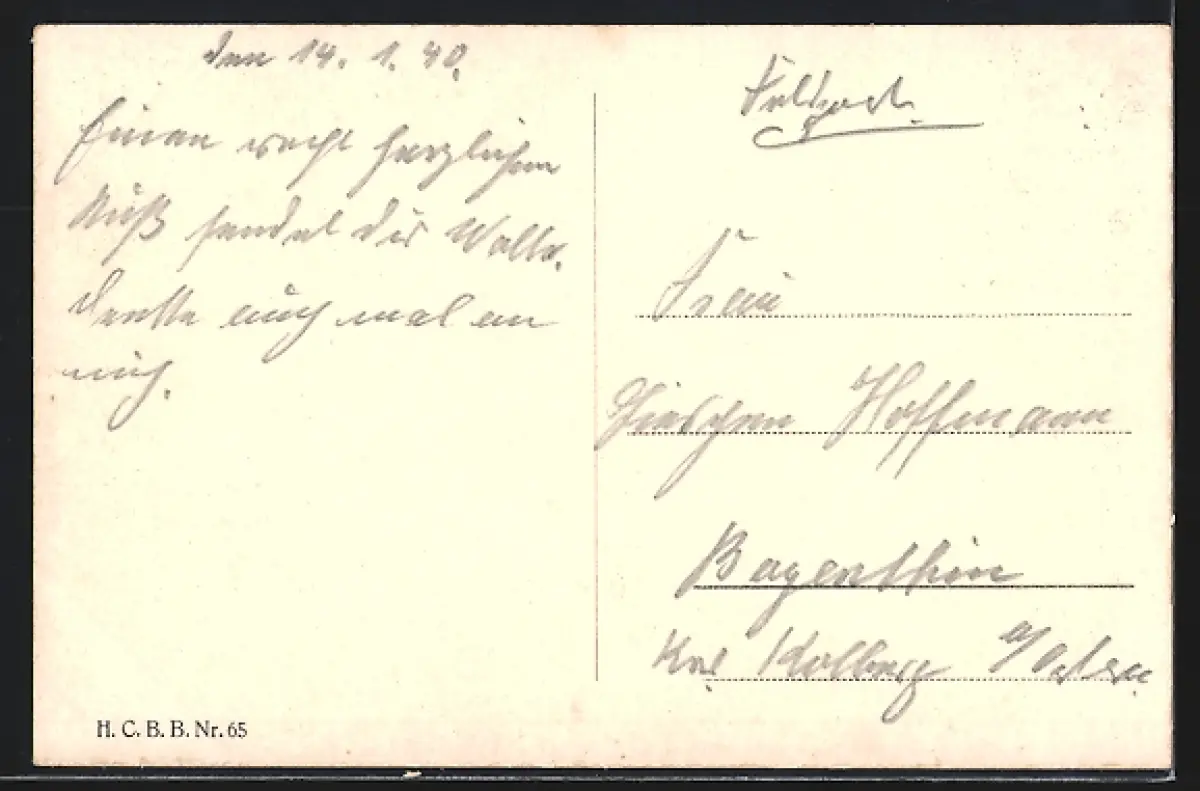 den 14. 1. 40.
Einen recht herzlichen
Kuß sendet dir Walter.
Denke auch mal an
mich.
Feldpost.
Frau
Hoffmann
Bagenthin
Krs. Kolberg
H. C. B. B. Nr. 65